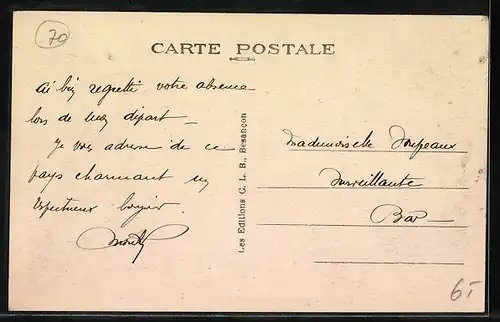 70
CARTE POSTALE
ai bien regretté votre absence
lors de mon départ —
Je vous adresse de ce
pays charmant un
respectueux bonjour.
Les Editions C. L. B., Besançon
Mademoiselle
Surveillante
Bar —
6